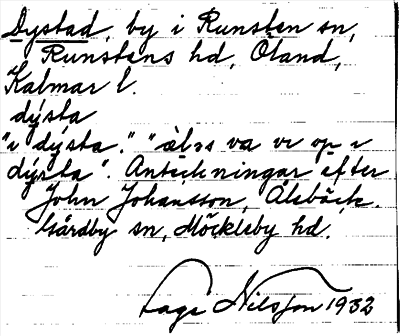 Dystad, by i Runsten sn,
Runstens hd, Öland,
Kalmar l.
dýsta
"i dýsta." "àləs va vi op i
dýsta". Anteckningar efter
John Johansson, Ålebäck.
Gårdby sn, Möckleby hd.
Tage Nilsson 1932